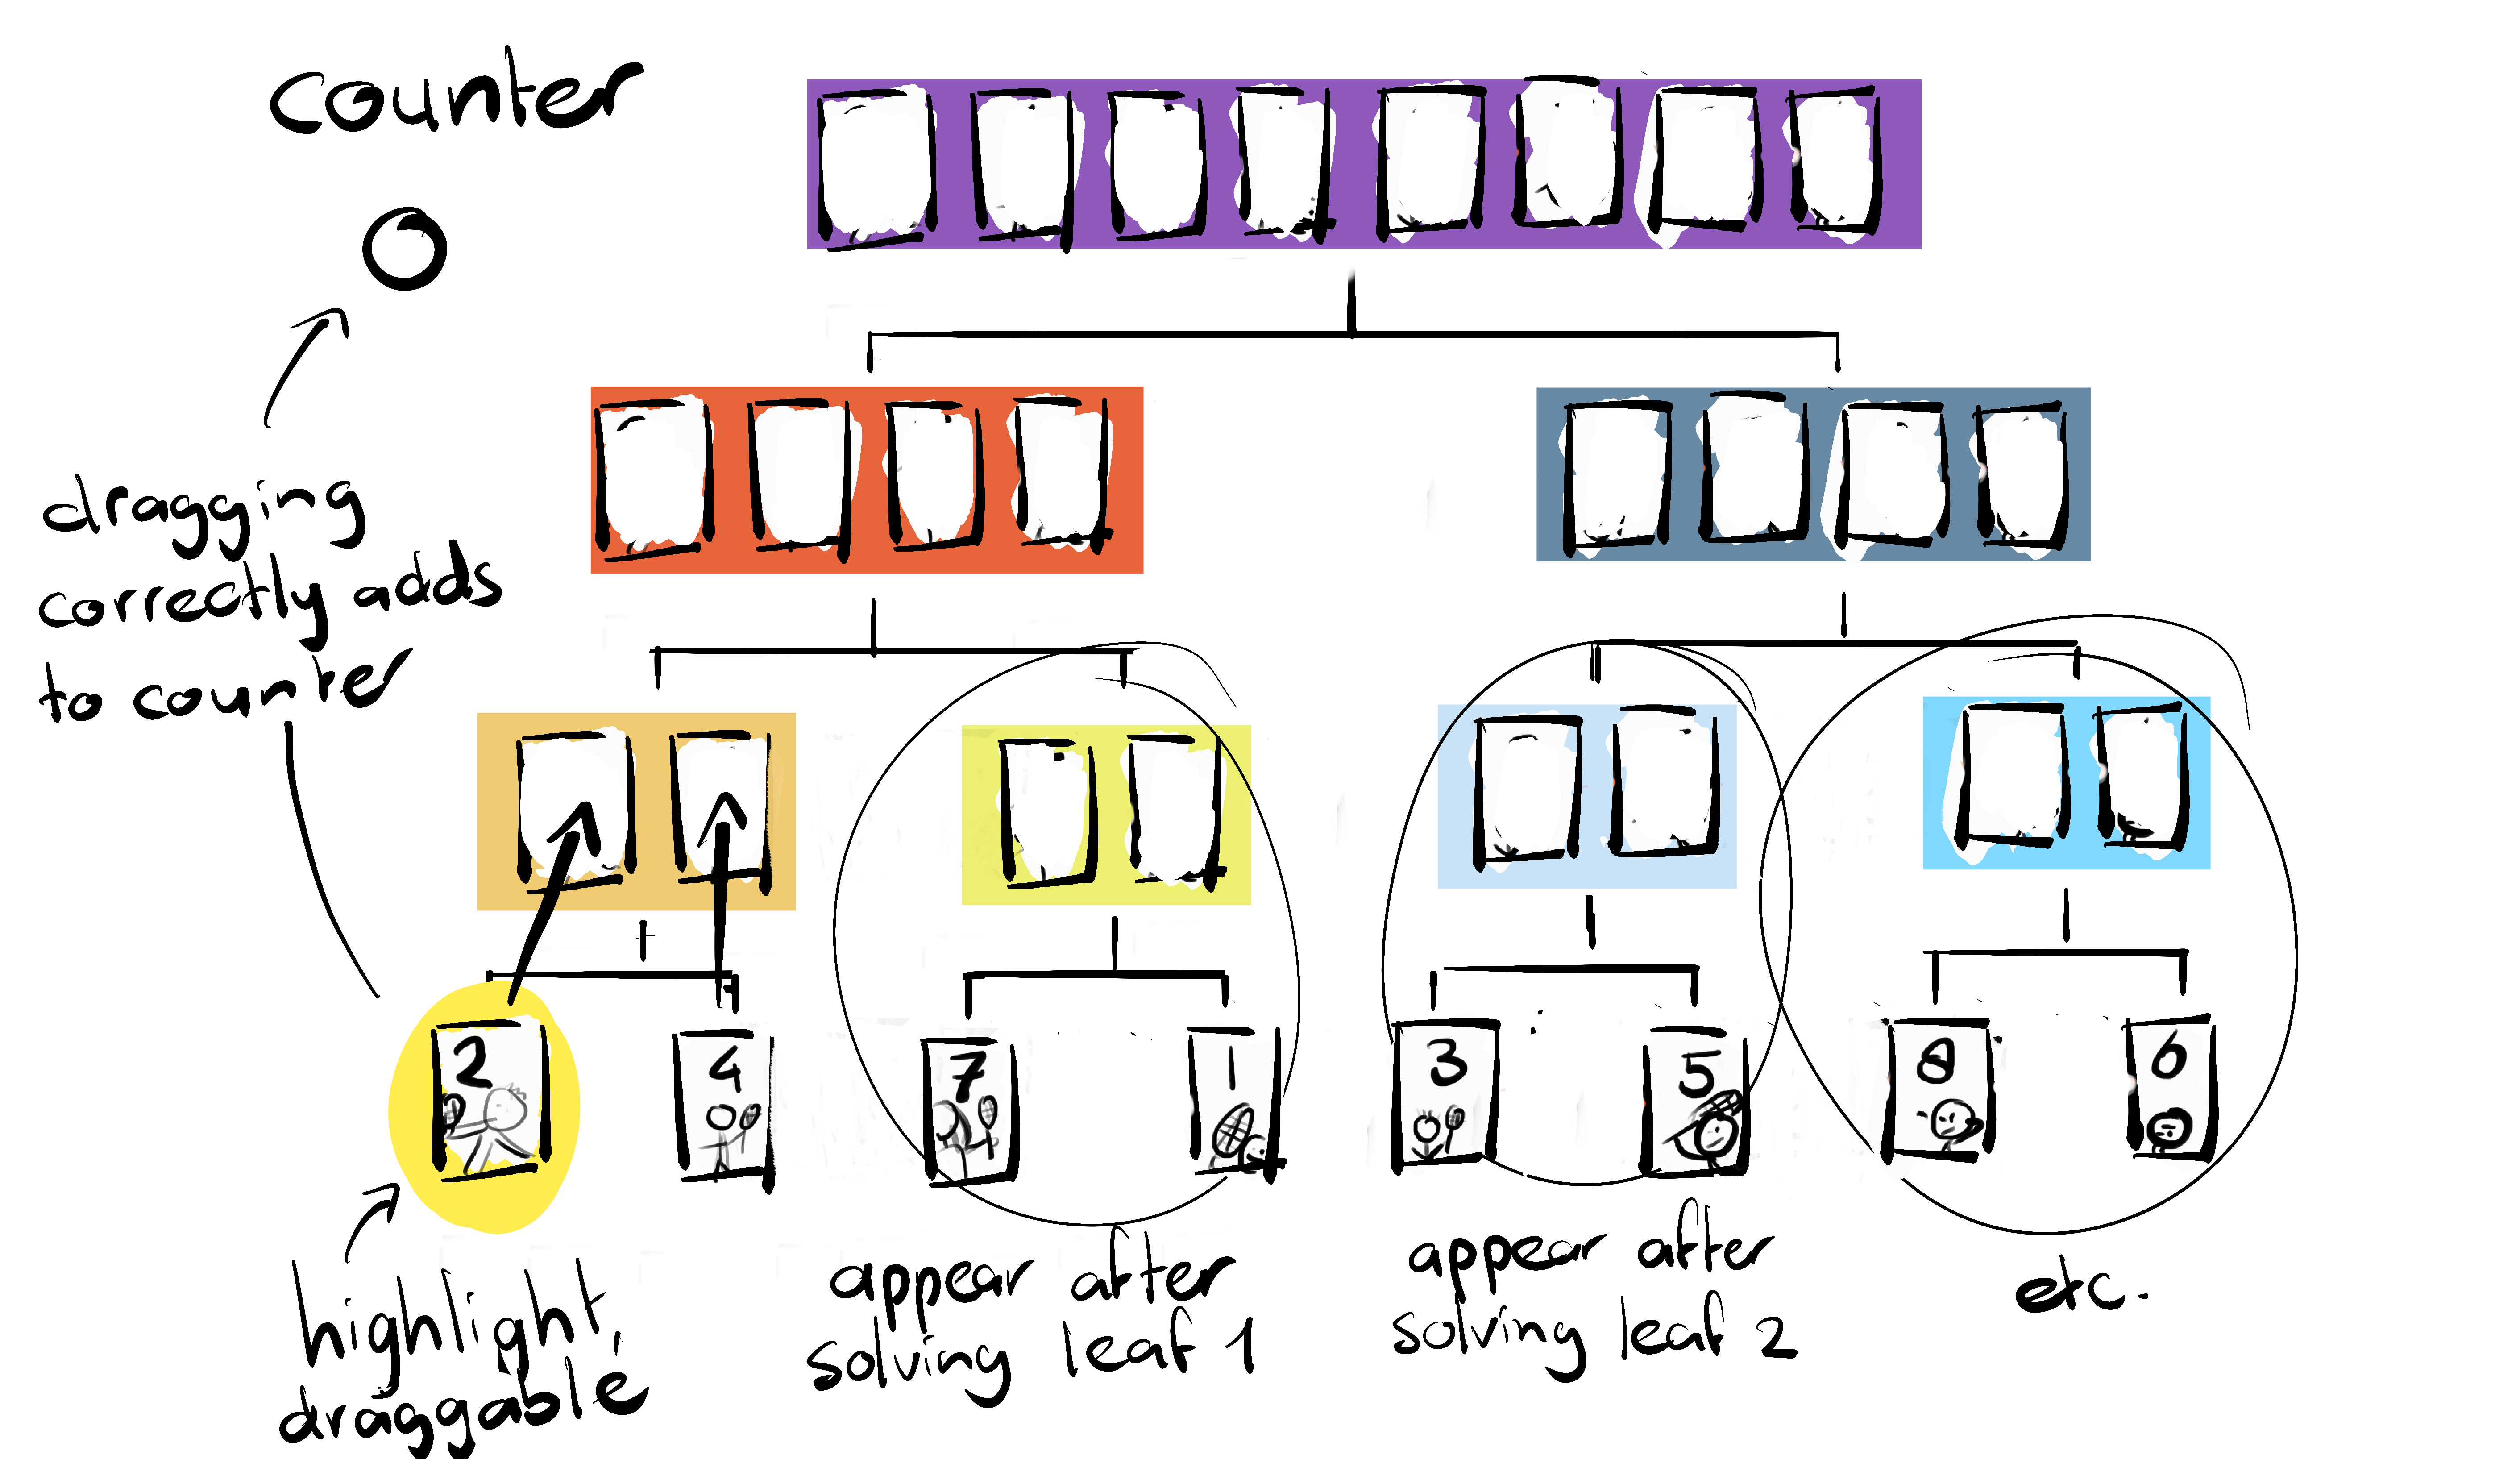 counter
0
dragging
correctly adds
to counter
2
4
7
1
3
5
8
6
highlight,
draggable
appear after
solving leaf 1
appear after
solving leaf 2
etc.